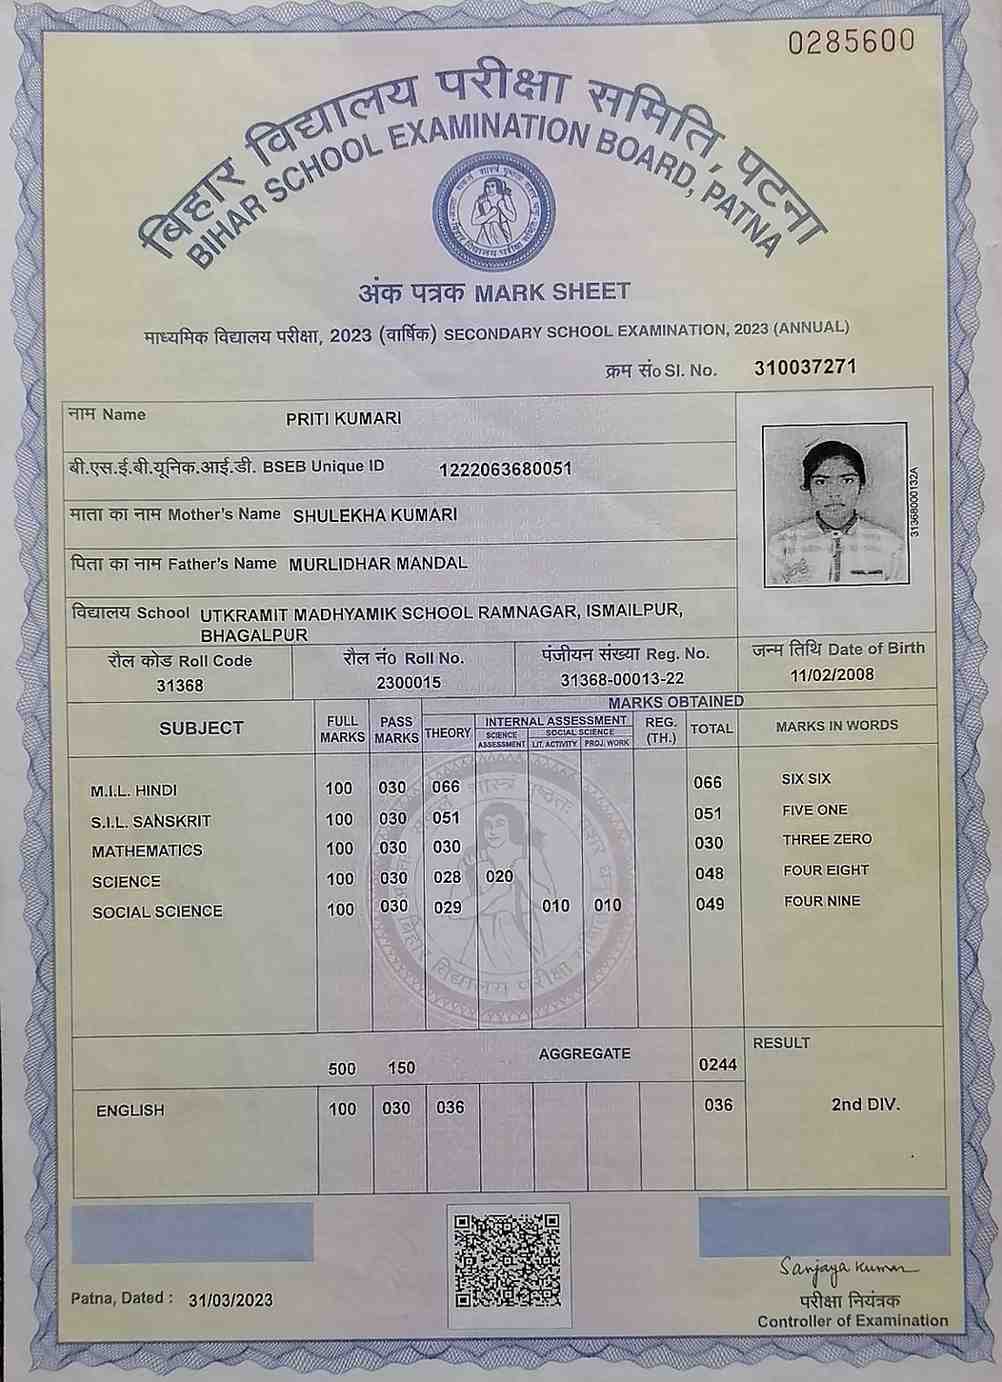 0285600
बिहार विद्यालय परीक्षा समिति, पटना
BIHAR SCHOOL EXAMINATION BOARD, PATNA
अंक पत्रक MARK SHEET
माध्यमिक विद्यालय परीक्षा, 2023 (वार्षिक) SECONDARY SCHOOL EXAMINATION, 2023 (ANNUAL)
क्रम सं० Sl. No. 310037271
नाम Name PRITI KUMARI
बी.एस.ई.बी.यूनिक.आई.डी. BSEB Unique ID 1222063680051
माता का नाम Mother's Name SHULEKHA KUMARI
पिता का नाम Father's Name MURLIDHAR MANDAL
31368000132A
विद्यालय School UTKRAMIT MADHYAMIK SCHOOL RAMNAGAR, ISMAILPUR,
BHAGALPUR
रौल कोड Roll Code रौल नं० Roll No. पंजीयन संख्या Reg. No. जन्म तिथि Date of Birth
31368 2300015 31368-00013-22 11/02/2008
MARKS OBTAINED
SUBJECT FULL MARKS PASS MARKS THEORY INTERNAL ASSESSMENT REG. (TH.) TOTAL MARKS IN WORDS
SCIENCE ASSESSMENT SOCIAL SCIENCE
LIT. ACTIVITY PROJ. WORK
M.I.L. HINDI 100 030 066 066 SIX SIX
S.I.L. SANSKRIT 100 030 051 051 FIVE ONE
MATHEMATICS 100 030 030 030 THREE ZERO
SCIENCE 100 030 028 020 048 FOUR EIGHT
SOCIAL SCIENCE 100 030 029 010 010 049 FOUR NINE
500 150 AGGREGATE 0244 RESULT
ENGLISH 100 030 036 036 2nd DIV.
Sanjaya Kumar
Patna, Dated : 31/03/2023
परीक्षा नियंत्रक
Controller of Examination